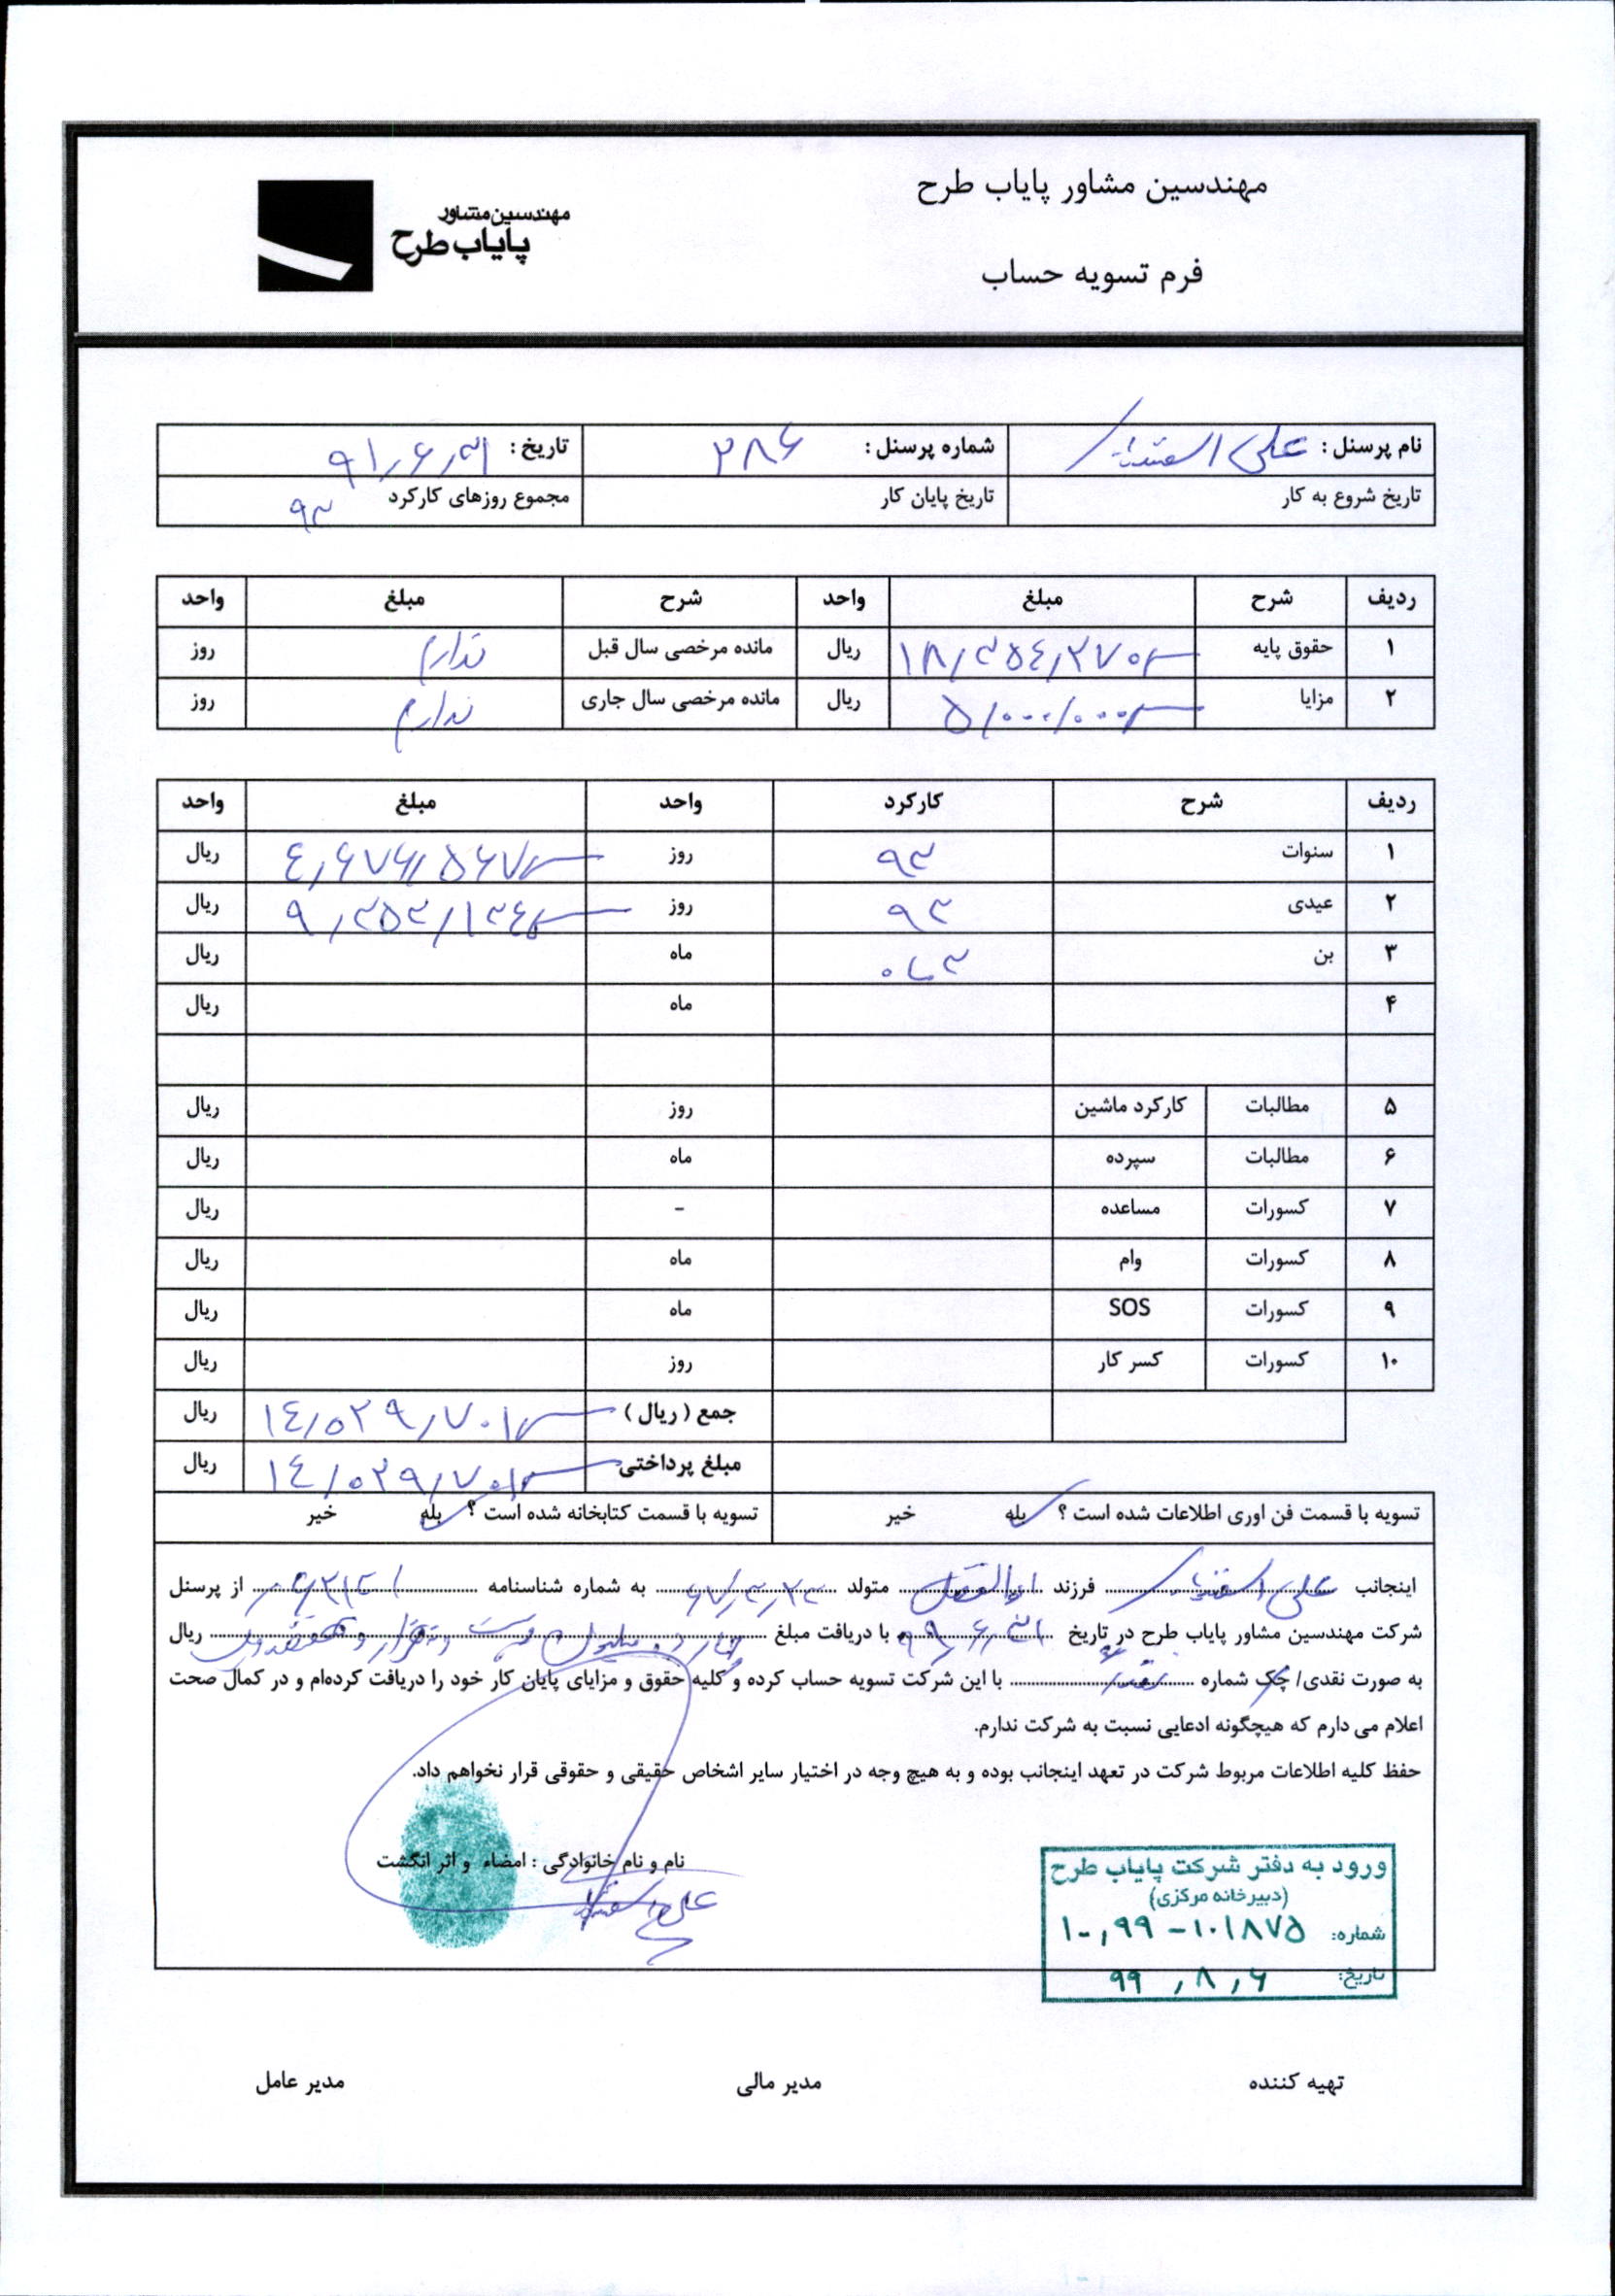 مهندسین مشاور پایاب طرح
مهندسین مشاور
پایاب طرح
فرم تسویه حساب
نام پرسنل : علی شماره پرسنل : ۲۸۶ تاریخ :
تاریخ شروع به کار تاریخ پایان کار مجموع روزهای کارکرد ۹۳
ردیف شرح مبلغ واحد شرح مبلغ واحد
۱ حقوق پایه ۱۸,۳۵٤,۲۷۰ ریال مانده مرخصی سال قبل ندارم روز
۲ مزایا ۵,۰۰۰,۰۰۰ ریال مانده مرخصی سال جاری ندارم روز
ردیف شرح کارکرد واحد مبلغ واحد
۱ سنوات ۹۳ روز ٤,۶۷۶,۵۶۷ ریال
۲ عیدی ۹۳ روز ۹,۳۵۳,۱۳٤ ریال
۳ بن ۳ ماه ماه ریال
۴ ماه ریال
۵ مطالبات کارکرد ماشین روز ریال
۶ مطالبات سپرده ماه ریال
۷ کسورات مساعده - ریال
۸ کسورات وام ماه ریال
۹ کسورات SOS ماه ریال
۱۰ کسورات کسر کار روز ریال
جمع ( ریال ) ۱٤,۰۲۹,۷۰۱ ریال
مبلغ پرداختی ۱٤,۰۲۹,۷۰۱ ریال
تسویه با قسمت فن اوری اطلاعات شده است ؟ بله خیر تسویه با قسمت کتابخانه شده است ؟ بله خیر
اینجانب علی فرزند ابوالفضل متولد به شماره شناسنامه از پرسنل
شرکت مهندسین مشاور پایاب طرح در تاریخ با دریافت مبلغ ریال
به صورت نقدی/ چک شماره با این شرکت تسویه حساب کرده و کلیه حقوق و مزایای پایان کار خود را دریافت کرده‌ام و در کمال صحت
اعلام می دارم که هیچگونه ادعایی نسبت به شرکت ندارم.
حفظ کلیه اطلاعات مربوط شرکت در تعهد اینجانب بوده و به هیچ وجه در اختیار سایر اشخاص حقیقی و حقوقی قرار نخواهم داد.
نام و نام خانوادگی : امضاء و اثر انگشت
علی
ورود به دفتر شرکت پایاب طرح
(دبیرخانه مرکزی)
شماره: ۱۰,۹۹-۱۰۱۸۷۵
تاریخ: ۹۹,۸,۶
تهیه کننده مدیر مالی مدیر عامل